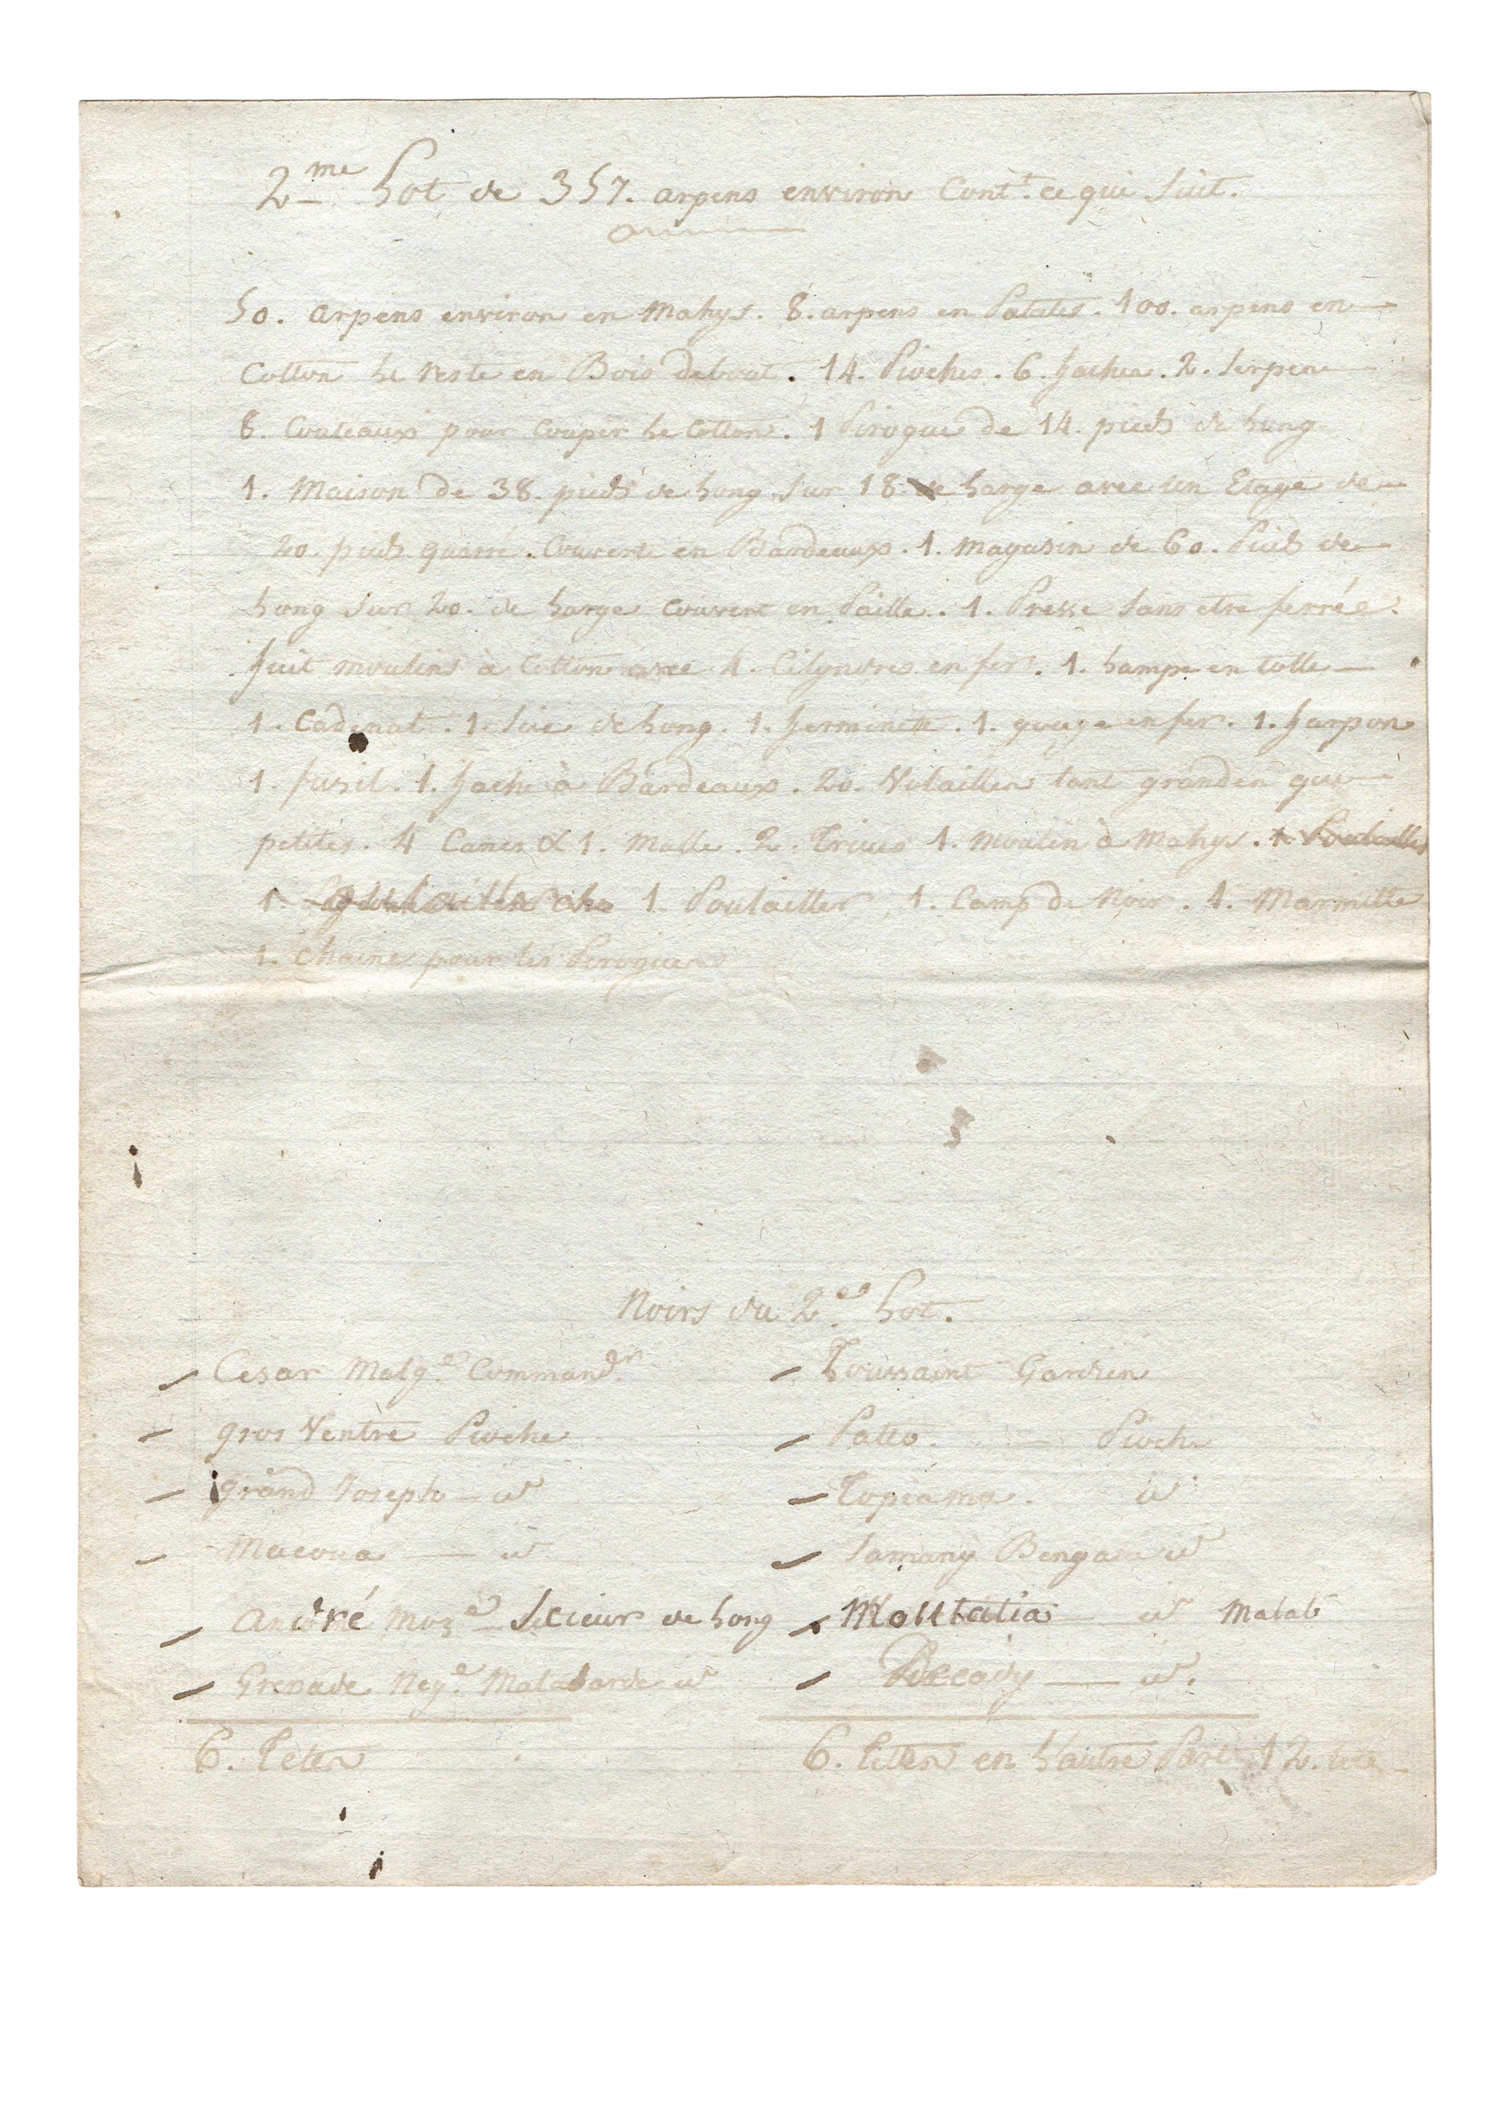 2.me Lot de 357. arpens environ Cont.t ce qui Suit.
50. arpens environ en Mahys. 8. arpens en Patates. 100. arpens en
Cotton Le reste en Bois debout. 14. Pioches. 6. haches. 2. Serpes
8. Couteaux pour Couper Le Cotton. 1 Pirogue de 14. pieds de Long
1. Maison de 38. pieds de Long Sur 18. de Large avec un Etage de
20. pieds quarré. Couverte en Bardeaux. 1. Magasin de 60. Pieds de
Long Sur 20. de Large Couvert en Paille. 1. Presse Sans etre ferrée.
huit moulins à Cotton avec 4. Cilyndres en fer. 1. Lampe en tolle
1. Cadenat. 1. Sie de Long. 1. herminette. 1. gouge en fer. 1. harpon
1. fusil. 1. hache à Bardeaux. 20. Volailles tant grandes que
petites. 4 Canes & 1. Malle. 2. Truies 1. Moulin à Mahys. 1. Poulailler
1. 1. Poulailler, 1. Camp de Noir. 1. Marmitte
1. Chaine pour les Pirogues
Noirs du 2.e Lot.
Cesar Malg.e Command.r
Toussaint Gardien
gros Ventre Pioche
Patto. Pioche
grand Joseph id
Topiama. id
Macoua id
Samany Bengale id
André Moz.e Scieur de Long
Mouttatia id Malab
Grenade Neg.e Malabarde id
Decady id.
6. Tetes
6. Tettes en L'autre Part 12. tete